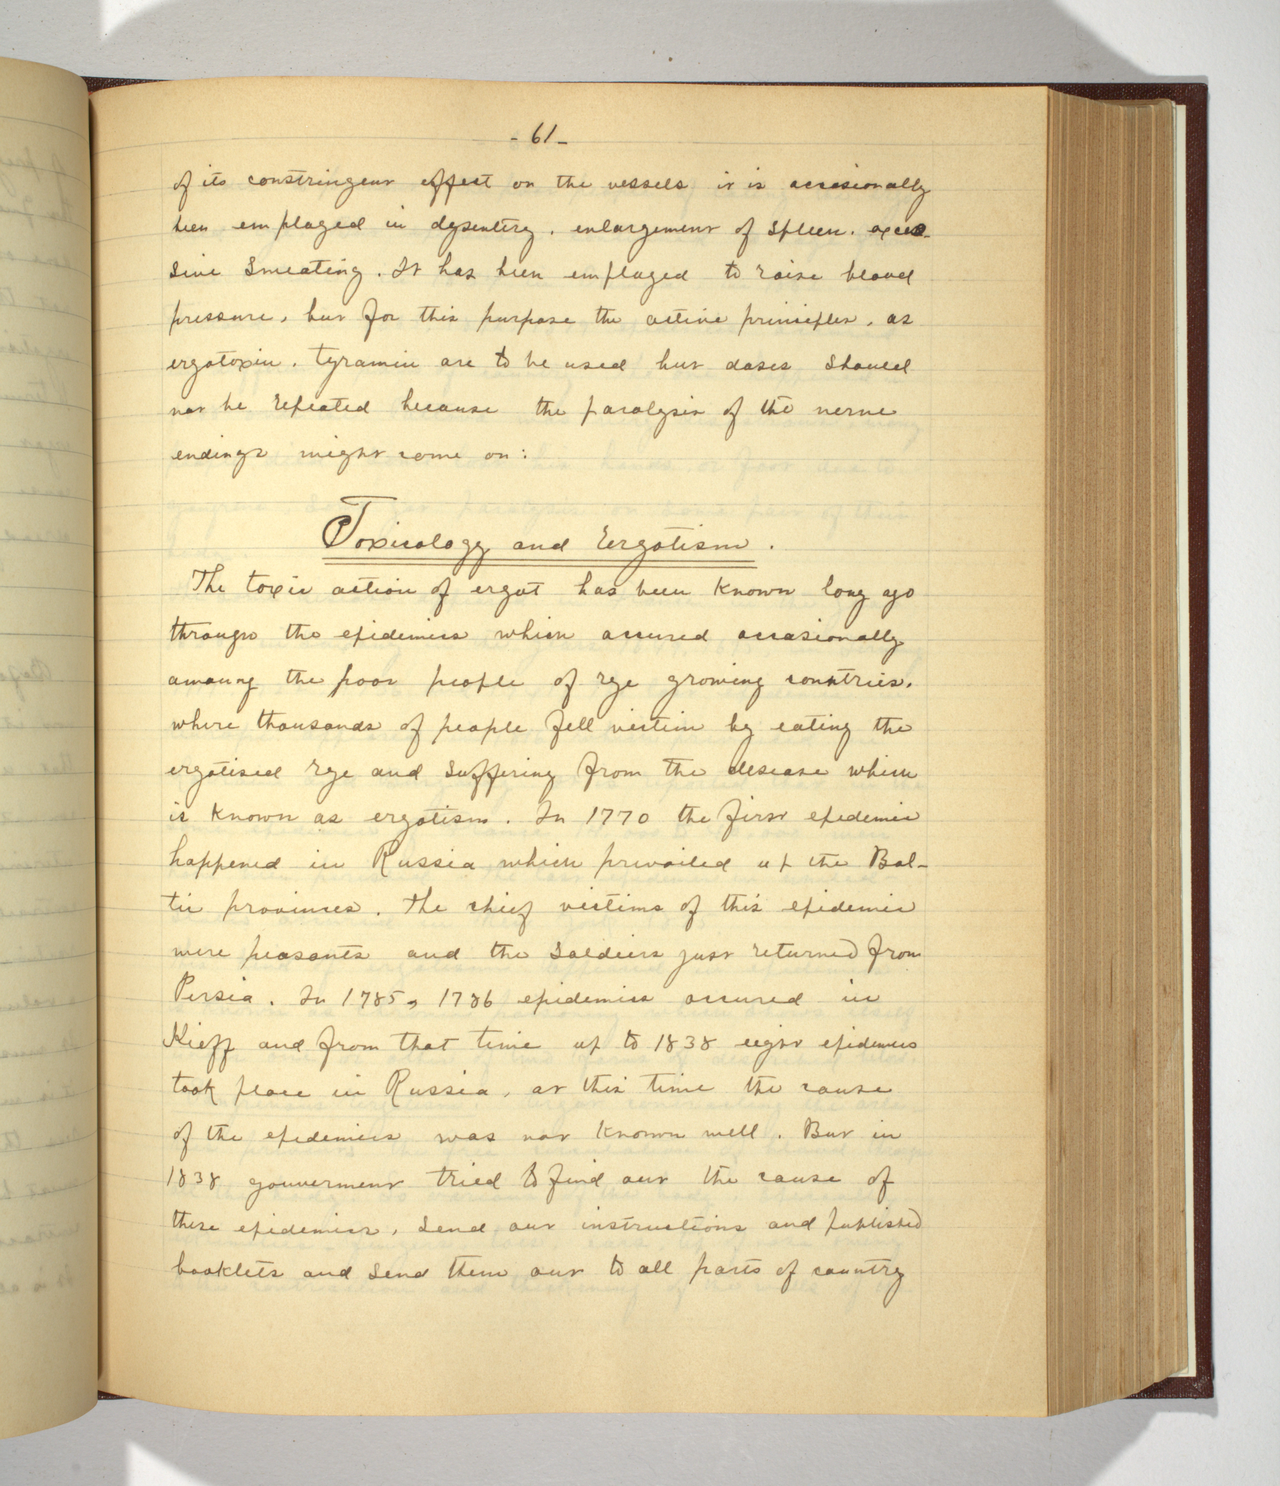 - 61 -
of its constringent effect on the vessels it is occasionally
been employed in dysentery, enlargement of spleen, exces-
sive sweating. It has been employed to raise blood
pressure, but for this purpose the active principles, as
ergotoxin, tyramin are to be used but doses should
not be repeated because the paralysis of the nerve
endings might come on:
Toxicology and Ergotism.
The toxic action of ergot has been known long ago
through the epidemics which occured occasionally
amoung the poor people of rye growing countries,
where thousands of people fell victim by eating the
ergotised rye and suffering from the desease which
is known as ergotism. In 1770 the first epidemic
happened in Russia which prevailed at the Bal-
tic provinces. The chief victims of this epidemic
were peasants and the soldiers just returned from
Persia. In 1785, 1786 epidemics occured in
Kieff and from that time up to 1838 eight epidemics
took place in Russia, at this time the cause
of the epidemics was not known well. But in
1838 gouverment tried to find out the cause of
these epidemics, send out instructions and published
booklets and send them out to all parts of country